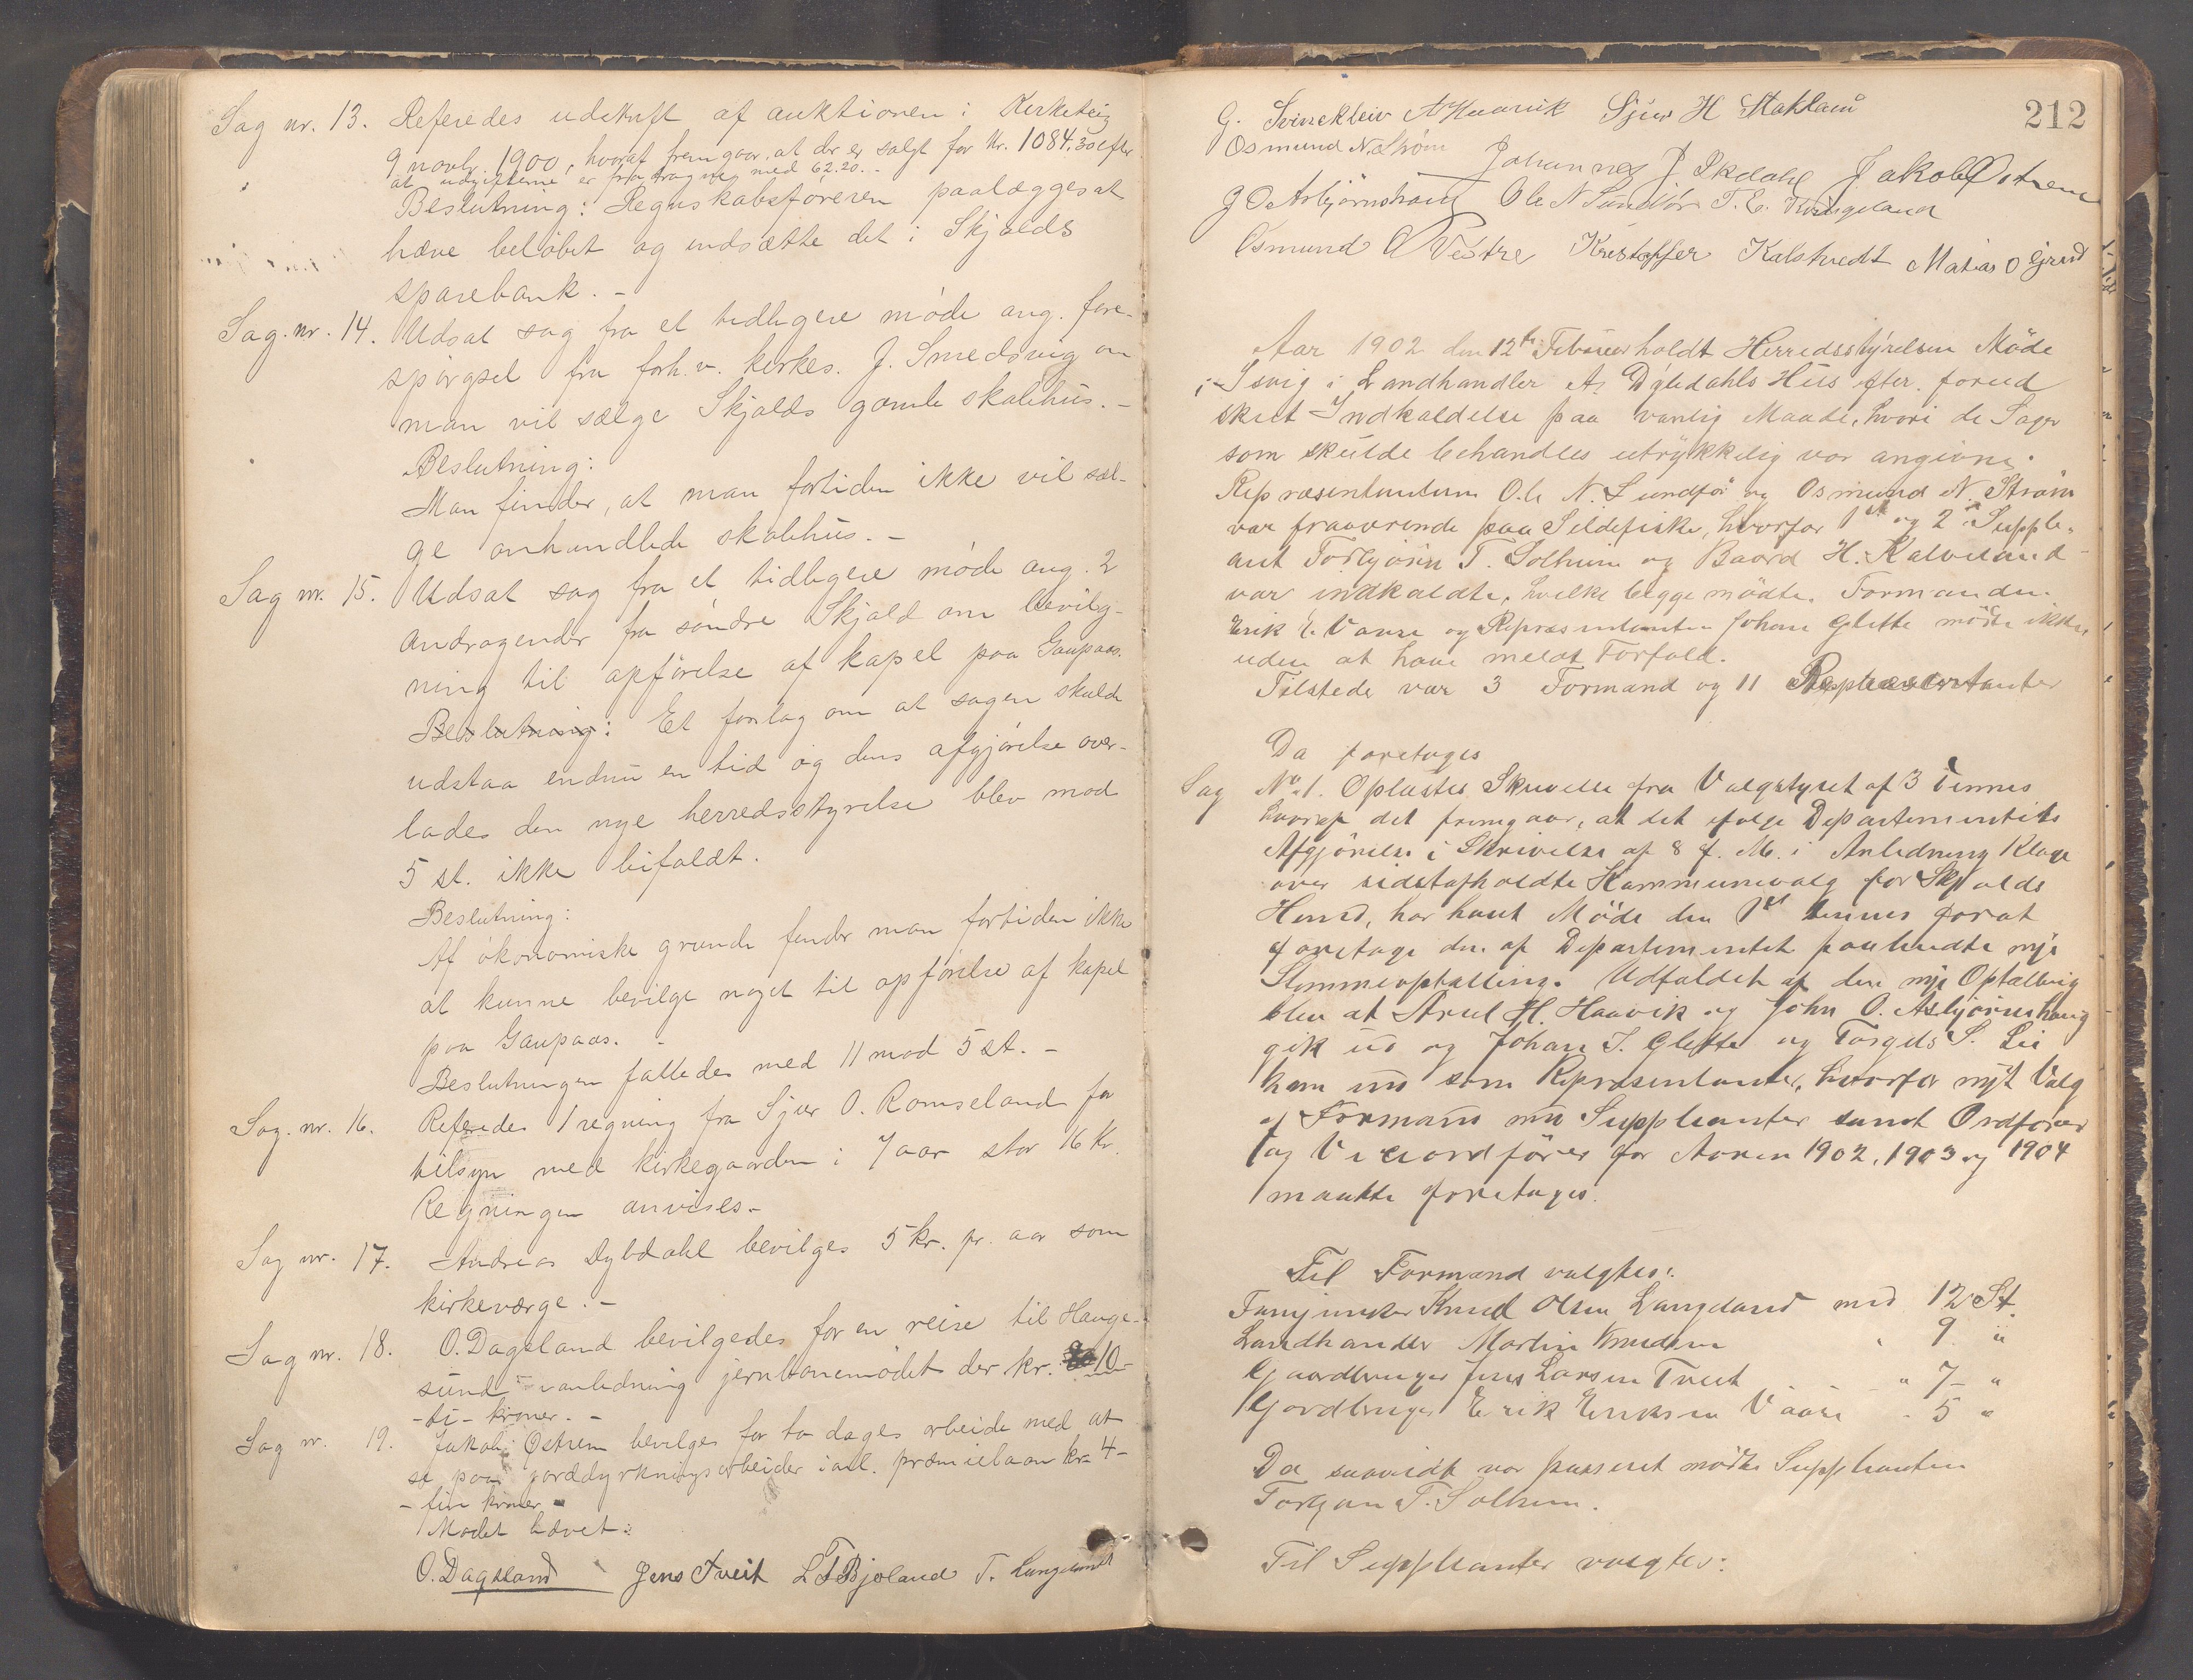 Sag nr. 13. Referedes udskrift af auktionen i Kirketeig
9 novbr. 1900, hvoraf fremgaar, at der er solgt for kr. 1084.30 efter
at udgifterne er fratragnes med 62.20.-
Beslutning: Regnskabsføreren paalægges at
hæve beløbet og indsætte det i Skjolds
sparebank. -
Sag. nr. 14. Udsat sag fra et tidligere møde ang. fore-
spørgsel fra forh.v. kirkes. J. Smedsvig om
man vil sælge Skjolds gamle skolehus. -
Beslutning:
Man finder, at man fortiden ikke vil sæl-
ge omhandlede skolehus. -
Sag nr. 15. Udsat sag fra et tidligere møde ang. 2
andragender fra søndre Skjold om bevilg-
ning til opførelse af kapel paa Gaupaas.
Beslutning: Et forslag om at sagen skulde
udstaa endnu en tid og dens afgjørelse over-
lades den nye herredsstyrelse blev mod
5 st. ikke bifaldt.
Beslutning:
Af økonomiske grunde finder man fortiden ikke
at kunne bevilge noget til opførelse af kapel
paa Gaupaas. -
Beslutningen fattedes med 11 mod 5 st. -
Sag. nr. 16. Referedes 1 regning fra Sjur O. Romseland for
tilsyn med kirkegaarden i 7 aar stor 16 kr.
Regningen anvises -
Sag nr. 17. Andreas Dybdahl bevilges 5 kr. pr. aar som
kirkeværge. -
Sag nr. 18. O. Dagsland bevilgedes for en reise til Hauge-
sund i anledning jernbanemødet der kr. 10-
- ti - kroner. -
Sag nr. 19. Jakob Østrem bevilges for to dages arbeide med at
se paa jorddyrkningsarbeider i anl. præmielaan kr. 4-
- fire kroner -
Mødet hævet:
O. Dagsland Jens Tveit L T Bjoland T. Langeland
212
G. Svinekleiv A Haavik Sjur H Stakland
Osmund N. Strøm Johannes J Ekdahl Jakob Østrem
J O Asbjørnshaug Ole N Sundfør T. E. Kvingeland
Osmund O Vestre Kristoffer Kalstvedt Matias O Grind
Aar 1902 den 12te Februar holdt Herredsstyrelsen Møde
i Isvig i Landhandler A. Dybdahls Hus efter forud
skeet Indkaldelse paa vanlig Maade, hvori de Sager
som skulde behandles utrykkelig var angivne.
Repræsentanterne Ole N. Sundfør og Osmund N. Strøm
var fraværende paa Sildefiske, hvorfor 1ste og 2den Supple-
ant Torbjørn T. Solheim og Baard H. Kalveland
var indkaldte, hvilke begge mødte. Formanden
Erik E. Vaare og Repræsentanten Johan Glette mødte ikke,
uden at have meldt Forfald.
Tilstede var 3 Formænd og 11 Repræsentanter
Da foretoges
Sag No 1. Oplæstes Skrivelse fra Valgstyret af 3 dennes
hvoraf det fremgaar, at det ifølge Departementets
Afgjørelse i Skrivelse af 8 f. M. i Anledning Klage
over sidstafholdte Kommunevalg for Skjolds
Herred, har havt Møde den 1st dennes forat
foretage den af Departementet paabudte nye
Stemmeoptælling. Udfaldet af den nye Optælling
blev at Arul H. Haavik og John O. Asbjørnshaug
gik ud og Johan J. Glette og Torgils S. Lie
kom ind som Repræsentanter, hvorfor nyt Valg
af Formænd med Suppleanter samt Ordfører
og Viceordfører for Aarene 1902, 1903 og 1904
maatte foretages.
Til Formænd valgtes:
Fanejunker Knud Olsen Langeland med 12 St.
Landhandler Martin Knudsen " 9 "
Gaardbruger Jens Larsen Tveit " 7 "
Gardbruger Erik Eriksen Vaare " 5 "
Da saavidt var passeret mødte Suppleanten
Torbjørn T. Solheim.
Til Suppleanter valgtes: